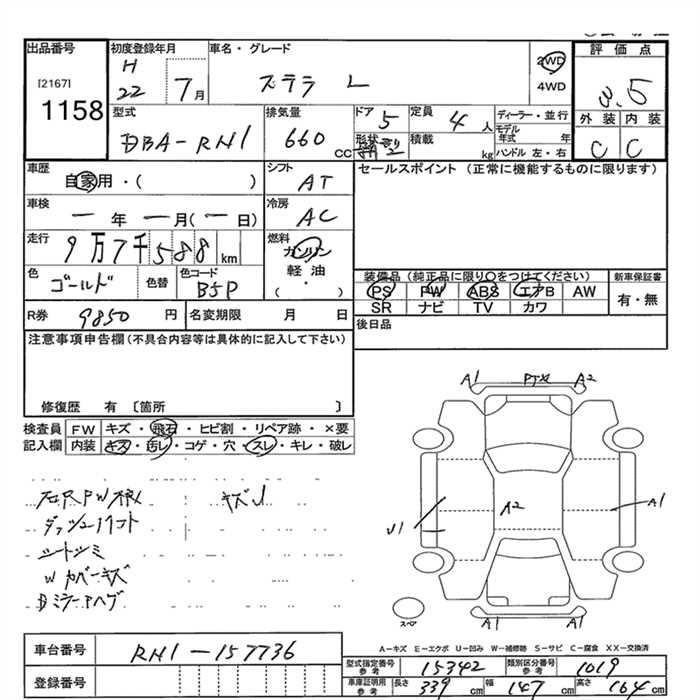 出品番号
[2167]
1158
初度登録年月
H
22 7月
車名・グレード
ステラ L
2WD
4WD
評価点
3.5
外装 内装
C C
型式
DBA-RN1
排気量
660 cc
ドア 5
形状 2
定員 4人
積載 kg
ディーラー・並行
モデル年式 年
ハンドル 左・右
車歴
自家用・( )
シフト
AT
セールスポイント (正常に機能するものに限ります)
車検
ー年 ー月(ー日)
冷房
AC
走行
9万7千588km
燃料
ガソリン
軽油
・
( )
色
ゴールド
色替
色コード
B5P
装備品(純正品に限り○をつけてください)
PS PW ABS エアB AW
SR ナビ TV カワ
新車保証書
有・無
R券 9850円
名変期限 月 日
後日品
注意事項申告欄(不具合内容等は具体的に記入して下さい)
修復歴 有 〔箇所 〕
検査員
記入欄
FW キズ・飛石・ヒビ割・リペア跡・×要
内装 キズ・汚レ・コゲ・穴・スレ・キレ・破レ
キズ
シートシミ
W カバーキズ
A1 A2
A2
A1
U1
A1 A1
スペア
A-キズ E-エクボ U-凹み W-補修跡 S-サビ C-腐食 XX-交換済
車台番号
RN1-157736
登録番号
型式指定番号
参考
15342
類別区分番号
参考
1019
車庫証明用
参考
長さ 339cm
幅 147cm
高さ 164cm